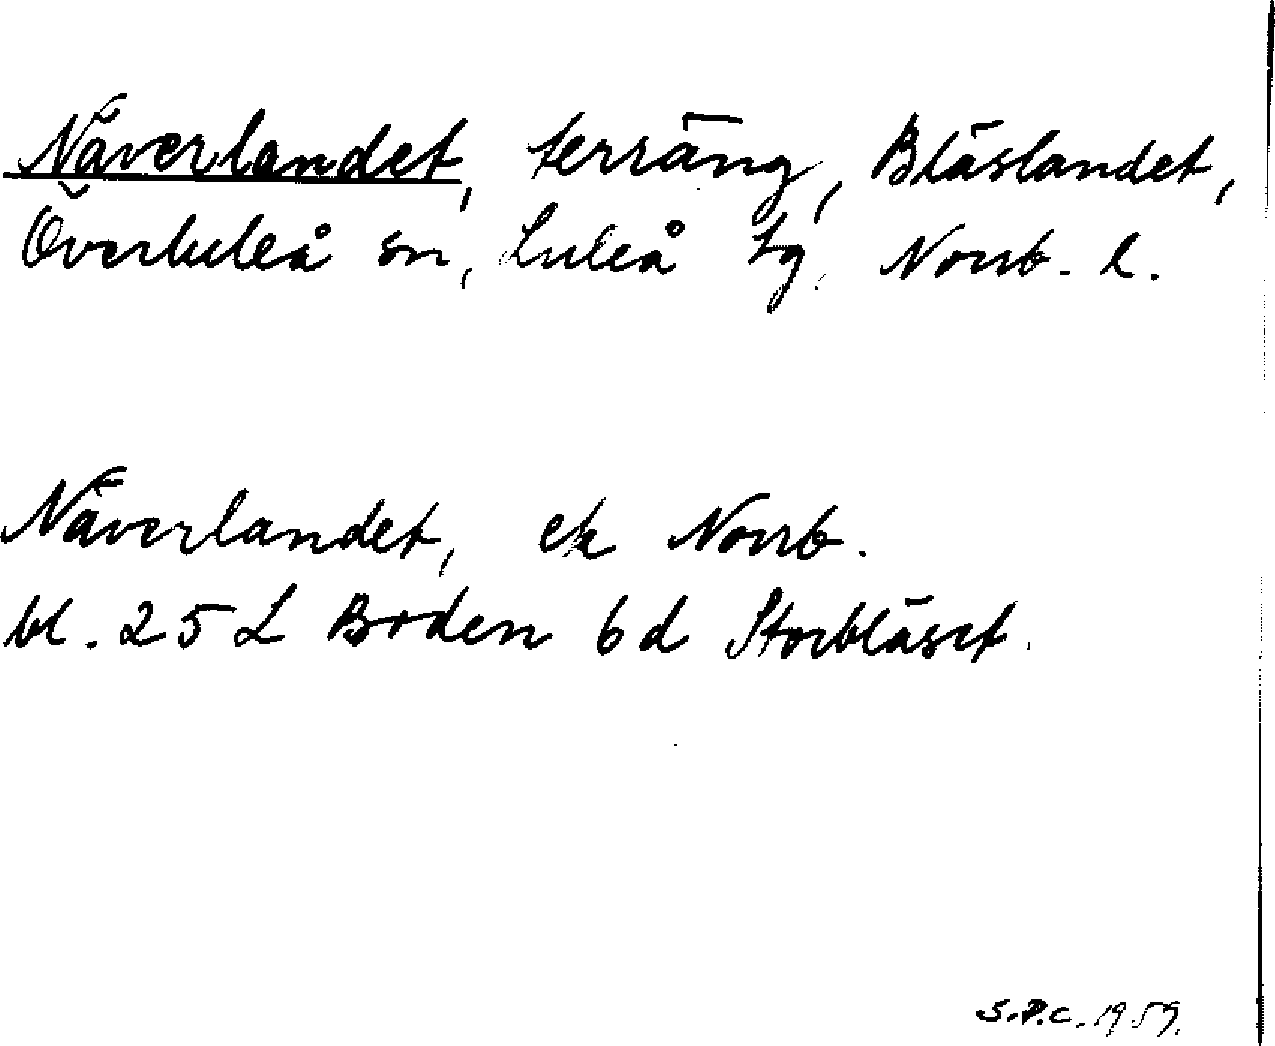 Näverlandet, terräng, Bläslandet,
Överluleå sn, Luleå tg, Norrb. l.
Näverlandet, ek Norrb.
bl. 25 L Boden 6d Storbläset.
S.P.C. 1959.